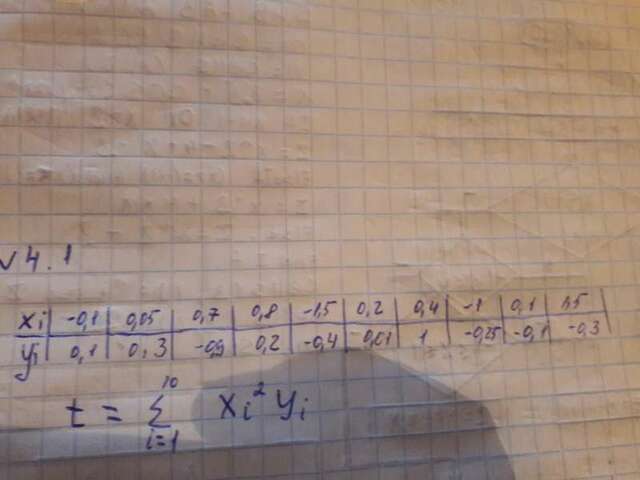 √4.1
xi | -0,1 | 0,05 | 0,7 | 0,8 | -1,5 | 0,2 | 0,4 | -1 | 0,1 | 1,5
yi | 0,1 | 0,3 | -0,9 | 0,2 | -0,4 | 0,01 | 1 | -0,25 | -0,1 | -0,3
10
t = Σ xi² yi
i=1